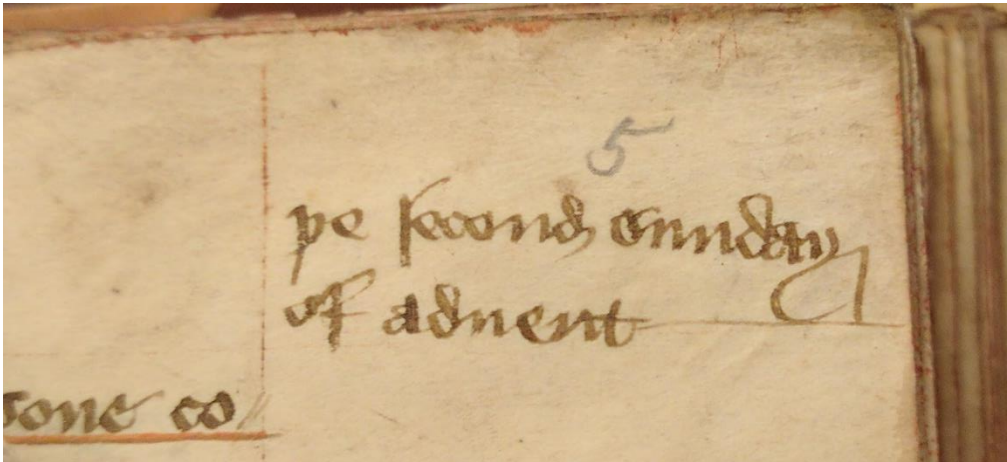 5
þe second sunday
of aduent
sone co